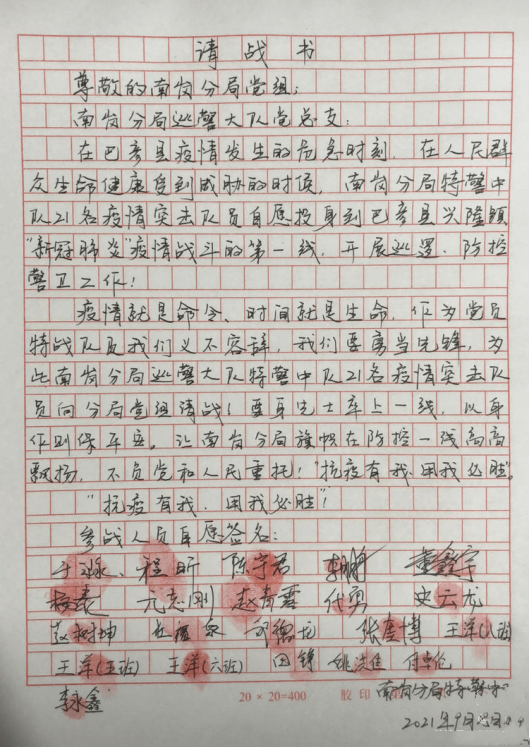 请战书
尊敬的南岗分局党组:
南岗分局巡警大队党总支:
在巴彦县疫情发生的危急时刻,在人民群
众生命健康受到威胁的时候,南岗分局特警中
队21名疫情突击队员自愿投身到巴彦县兴隆镇
“新冠肺炎”疫情战斗的第一线,开展巡逻、防控
警卫工作!
疫情就是命令、时间就是生命,作为党员
特战队员我们义不容辞,我们要勇当先锋,为
此南岗分局巡警大队特警中队21名疫情突击队
员向分局党组请战!要身先士卒上一线,以身
作则保平安,让南岗分局旗帜在防控一线高高
飘扬,不负党和人民重托!“抗疫有我,用我必胜”。
“抗疫有我,用我必胜”!
参战人员自愿签名:
程昕 陈宇君
元志刚 史云龙
王洋(八班)
王洋(五班) 王洋(六班) 田锋
李永鑫
20 × 20=400
南岗分局特警中
2021年9月